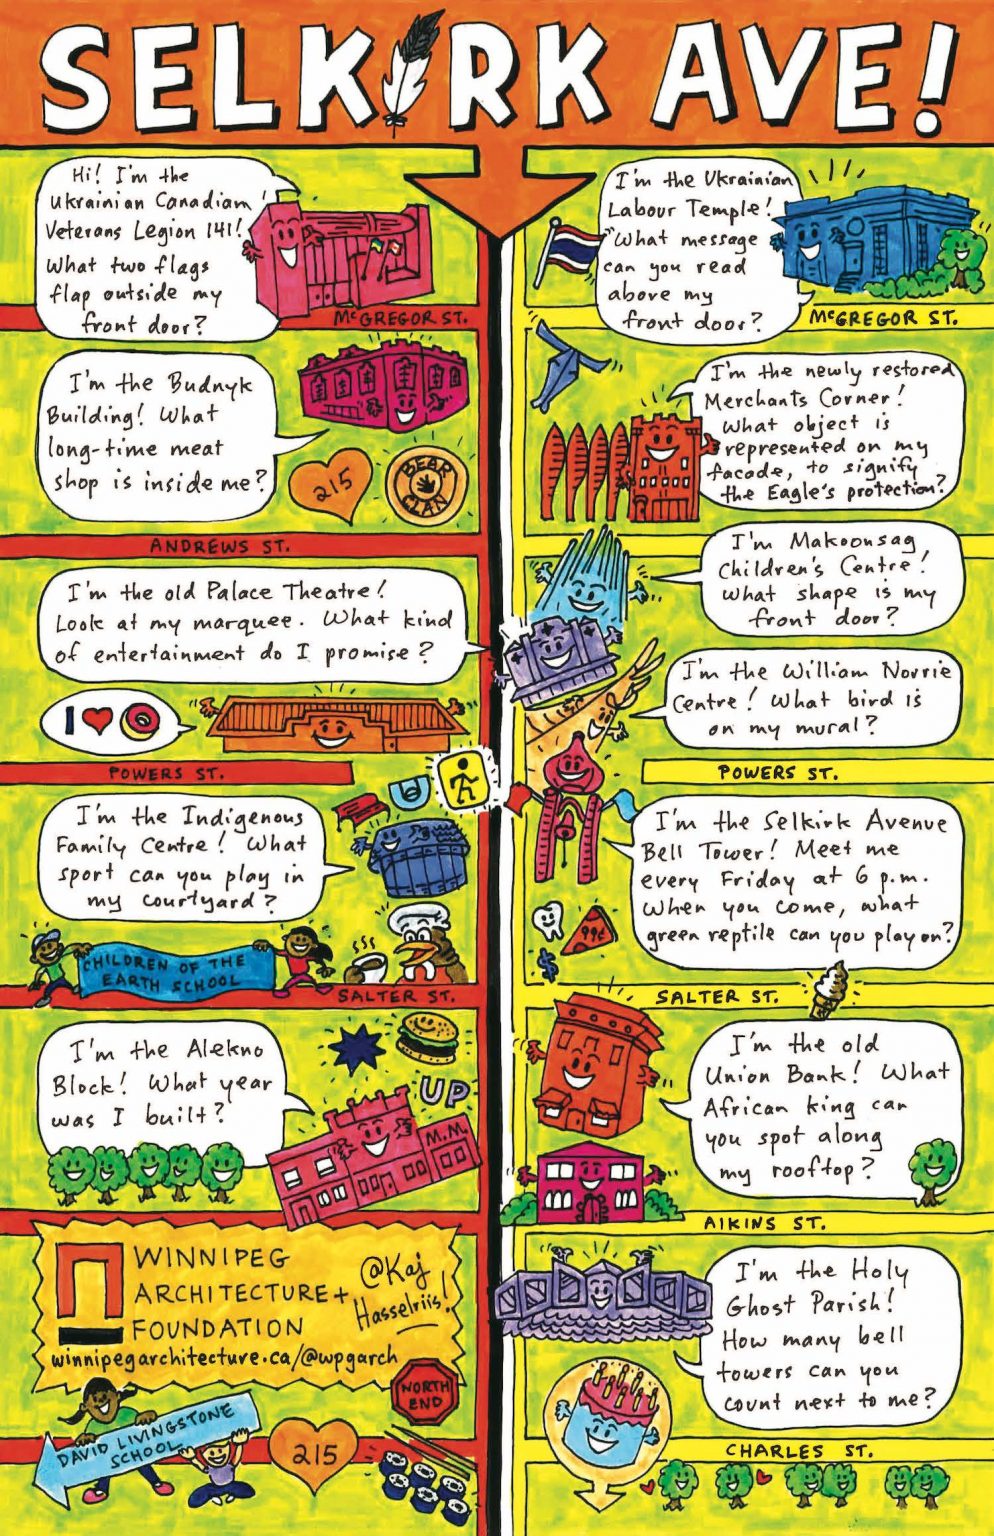 SELKIRK AVE!
Hi! I'm the
Ukrainian Canadian
Veterans Legion 141!
What two flags
flap outside my
front door?
I'm the Ukrainian
Labour Temple!
What message
can you read
above my
front door?
McGREGOR ST.
McGREGOR ST.
I'm the Budnyk
Building! What
long-time meat
shop is inside me?
215
BEAR
CLAN
I'm the newly restored
Merchants Corner!
What object is
represented on my
facade, to signify
the Eagle's protection?
ANDREWS ST.
I'm Makoonsag
Children's Centre!
What shape is my
front door?
I'm the old Palace Theatre!
Look at my marquee. What kind
of entertainment do I promise?
I'm the William Norrie
Centre! What bird is
on my mural?
I
POWERS ST.
POWERS ST.
I'm the Indigenous
Family Centre! What
sport can you play in
my courtyard?
I'm the Selkirk Avenue
Bell Tower! Meet me
every Friday at 6 p.m.
When you come, what
green reptile can you play on?
99¢
$
CHILDREN OF THE
EARTH SCHOOL
SALTER ST.
SALTER ST.
I'm the Alekno
Block! What year
was I built?
UP
M.M.
I'm the old
Union Bank! What
African king can
you spot along
my rooftop?
AIKINS ST.
WINNIPEG
ARCHITECTURE+
FOUNDATION
@Kaj
Hasselriis!
winnipegarchitecture.ca/@wpgarch
I'm the Holy
Ghost Parish!
How many bell
towers can you
count next to me?
NORTH
END
DAVID LIVINGSTONE
SCHOOL
215
CHARLES ST.